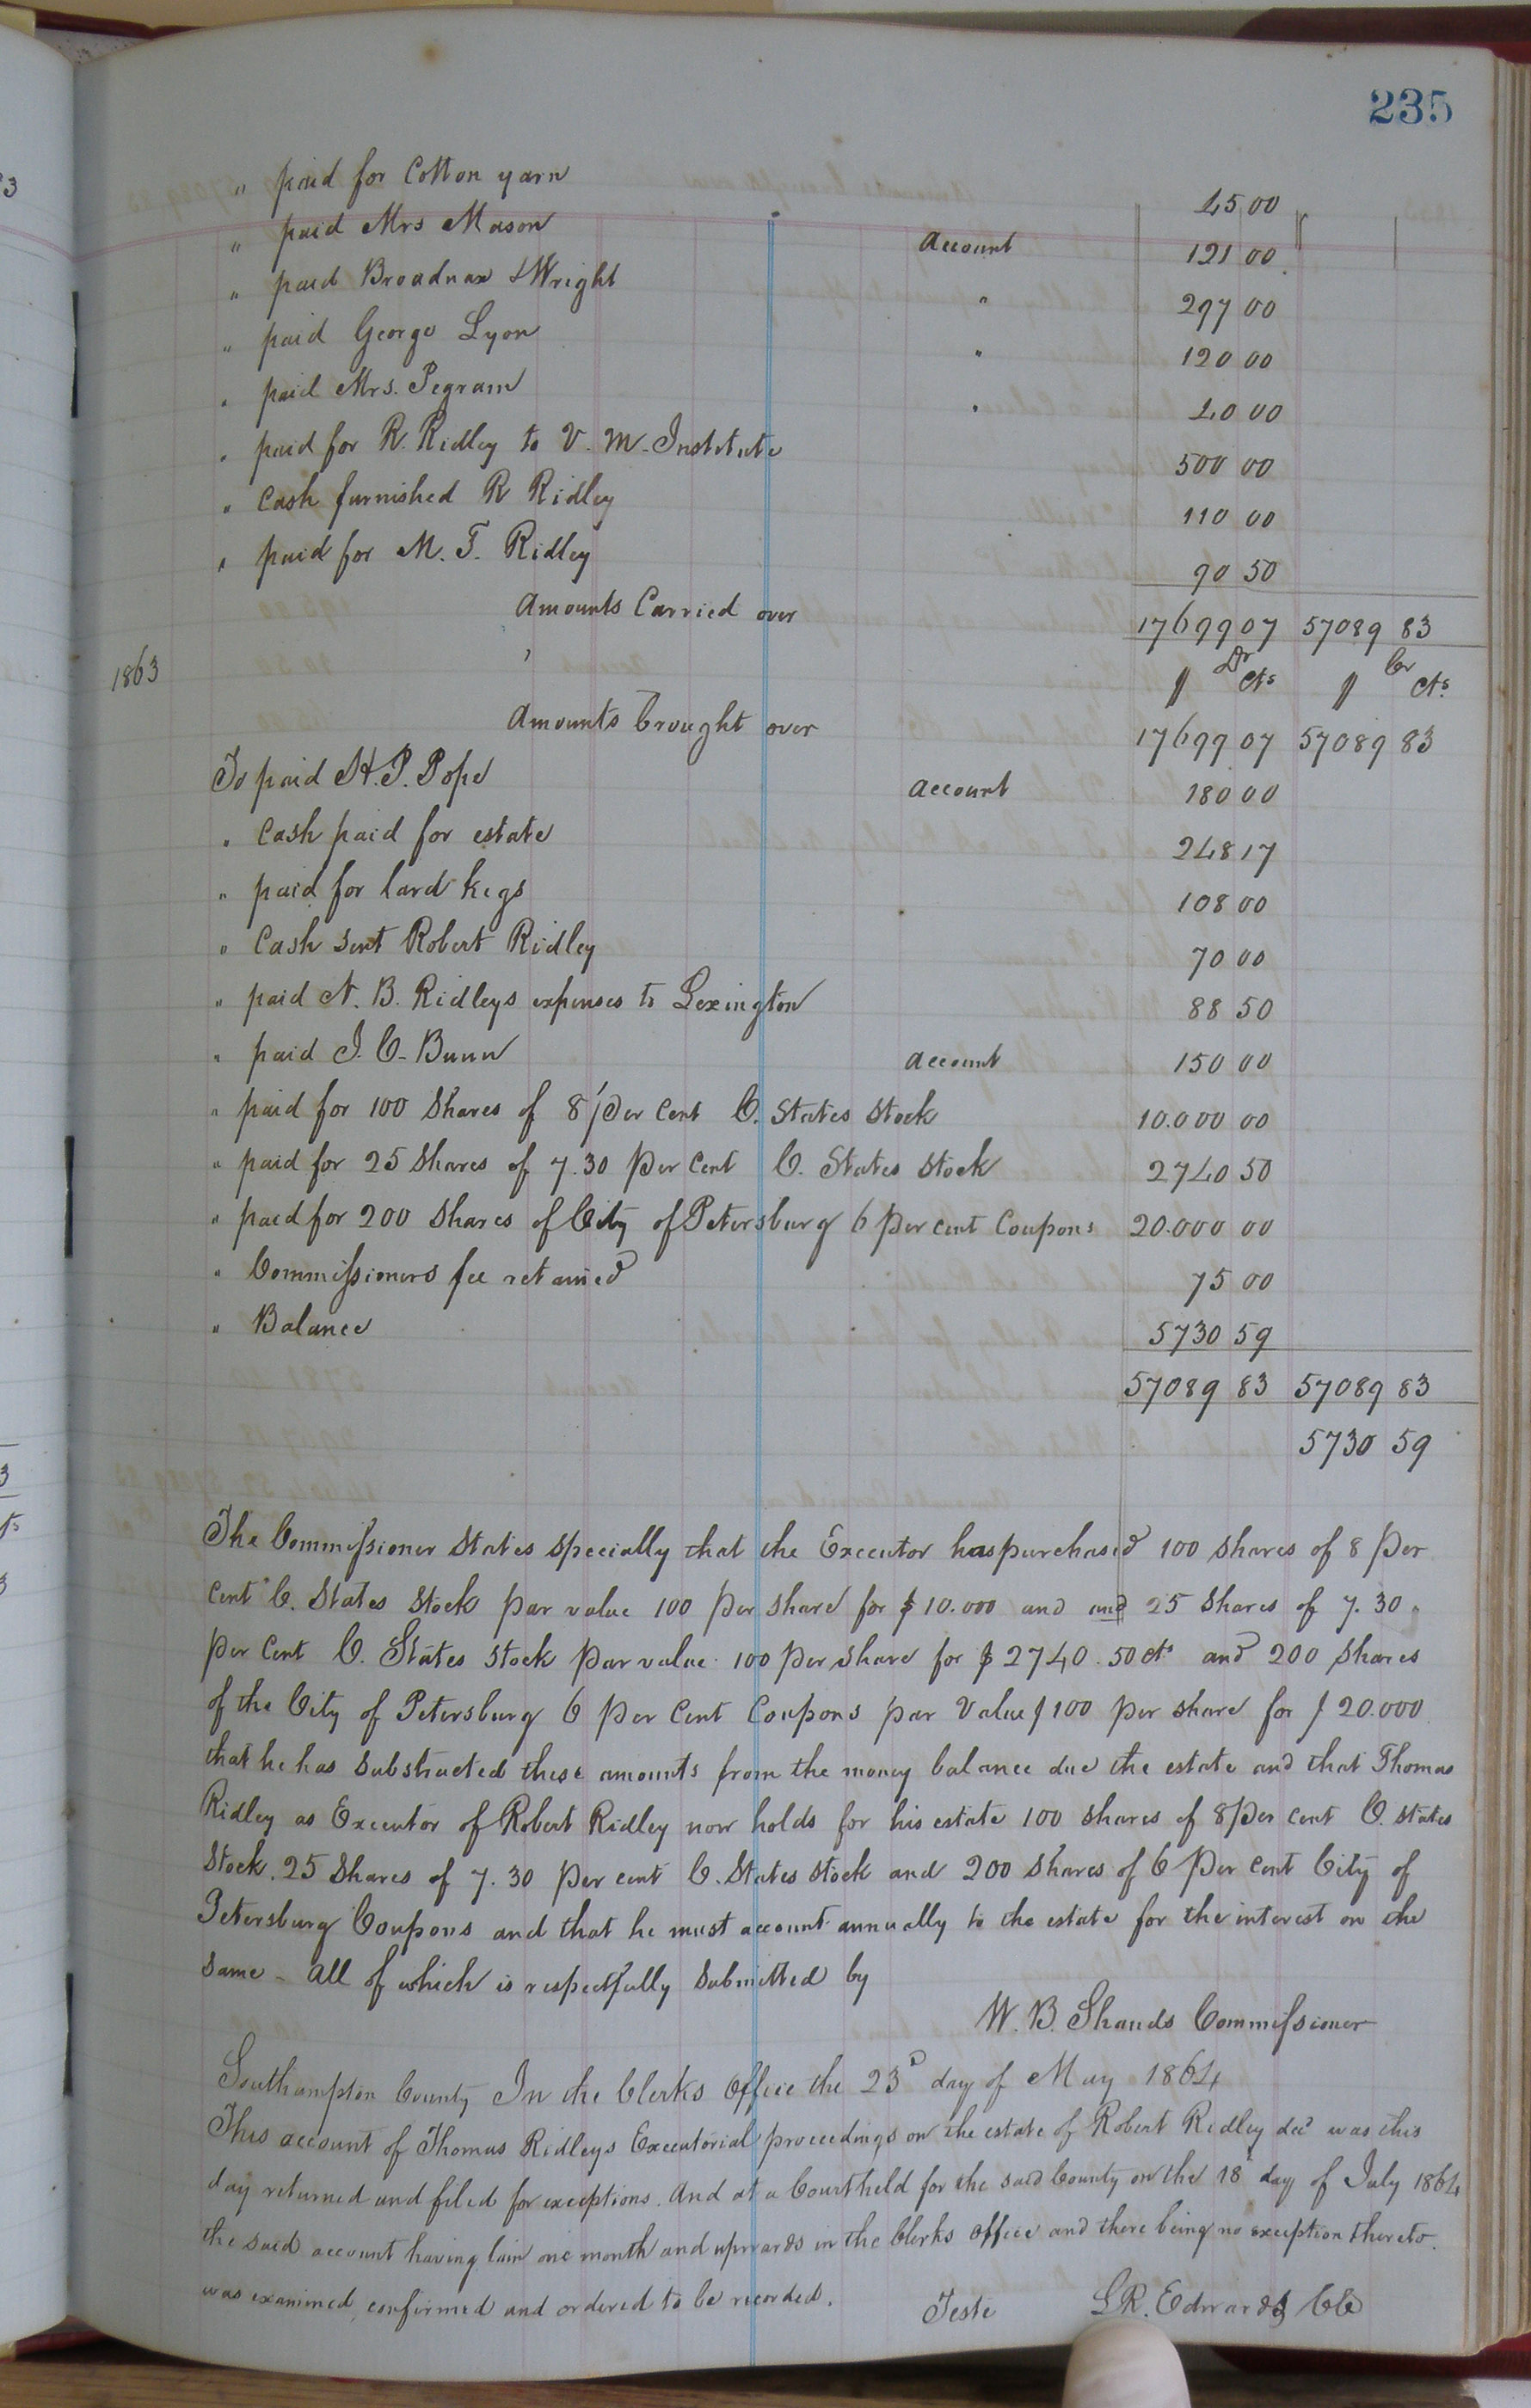 235
" paid for Cotton yarn 45 00
" paid Mrs Mason account 121 00
" paid Broadnax & Wright " 297 00
" paid George Lyon " 120 00
" paid Mrs. Pegram " 40 00
" paid for R. Ridley to V. M. Institute 500 00
" Cash furnished R Ridley 110 00
" paid for M. T. Ridley 90 50
Amounts Carried over 17699 07 57089 83
1863 $ Dr cts $ Cr cts
Amounts brought over 17699 07 57089 83
To paid H. P. Pope account 180 00
" Cash paid for estate 248 17
" paid for lard kegs 108 00
" Cash sent Robert Ridley 70 00
" paid N. B. Ridleys expenses to Lexington 88 50
" paid J. C. Bunn account 150 00
" paid for 100 Shares of 8 per cent C. States Stock 10.000 00
" paid for 25 Shares of 7.30 per cent C. States Stock 2740 50
" paid for 200 Shares of City of Petersburg 6 per cent Coupons 20.000 00
" Commissioners fee retained 75 00
" Balance 5730 59
57089 83 57089 83
5730 59
The Commissioner States specially that the Executor has purchased 100 shares of 8 per
cent C. States Stock par value 100 per share for $10.000 and and 25 Shares of 7.30
per cent C. States stock par value 100 per share for $2740.50 cts and 200 shares
of the City of Petersburg 6 per cent Coupons par value $100 per share for $20.000
that he has substracted these amounts from the money balance due the estate and that Thomas
Ridley as Executor of Robert Ridley now holds for his estate 100 shares of 8 per cent C. states
Stock. 25 Shares of 7.30 per cent C. States stock and 200 shares of 6 per cent City of
Petersburg Coupons and that he must account annually to the estate for the interest on the
same - all of which is respectfully submitted by
W. B. Shands Commissioner
Southampton County In the Clerks Office the 23d day of May 1864
This account of Thomas Ridleys Executorial proceedings on the estate of Robert Ridley decd was this
day returned and filed for exceptions. And at a Court held for the said County on the 18 day of July 1864
the said account having lain one month and upwards in the Clerks office and there being no exception thereto.
was examined, confirmed and ordered to be recorded.
Teste L. R. Edwards CC